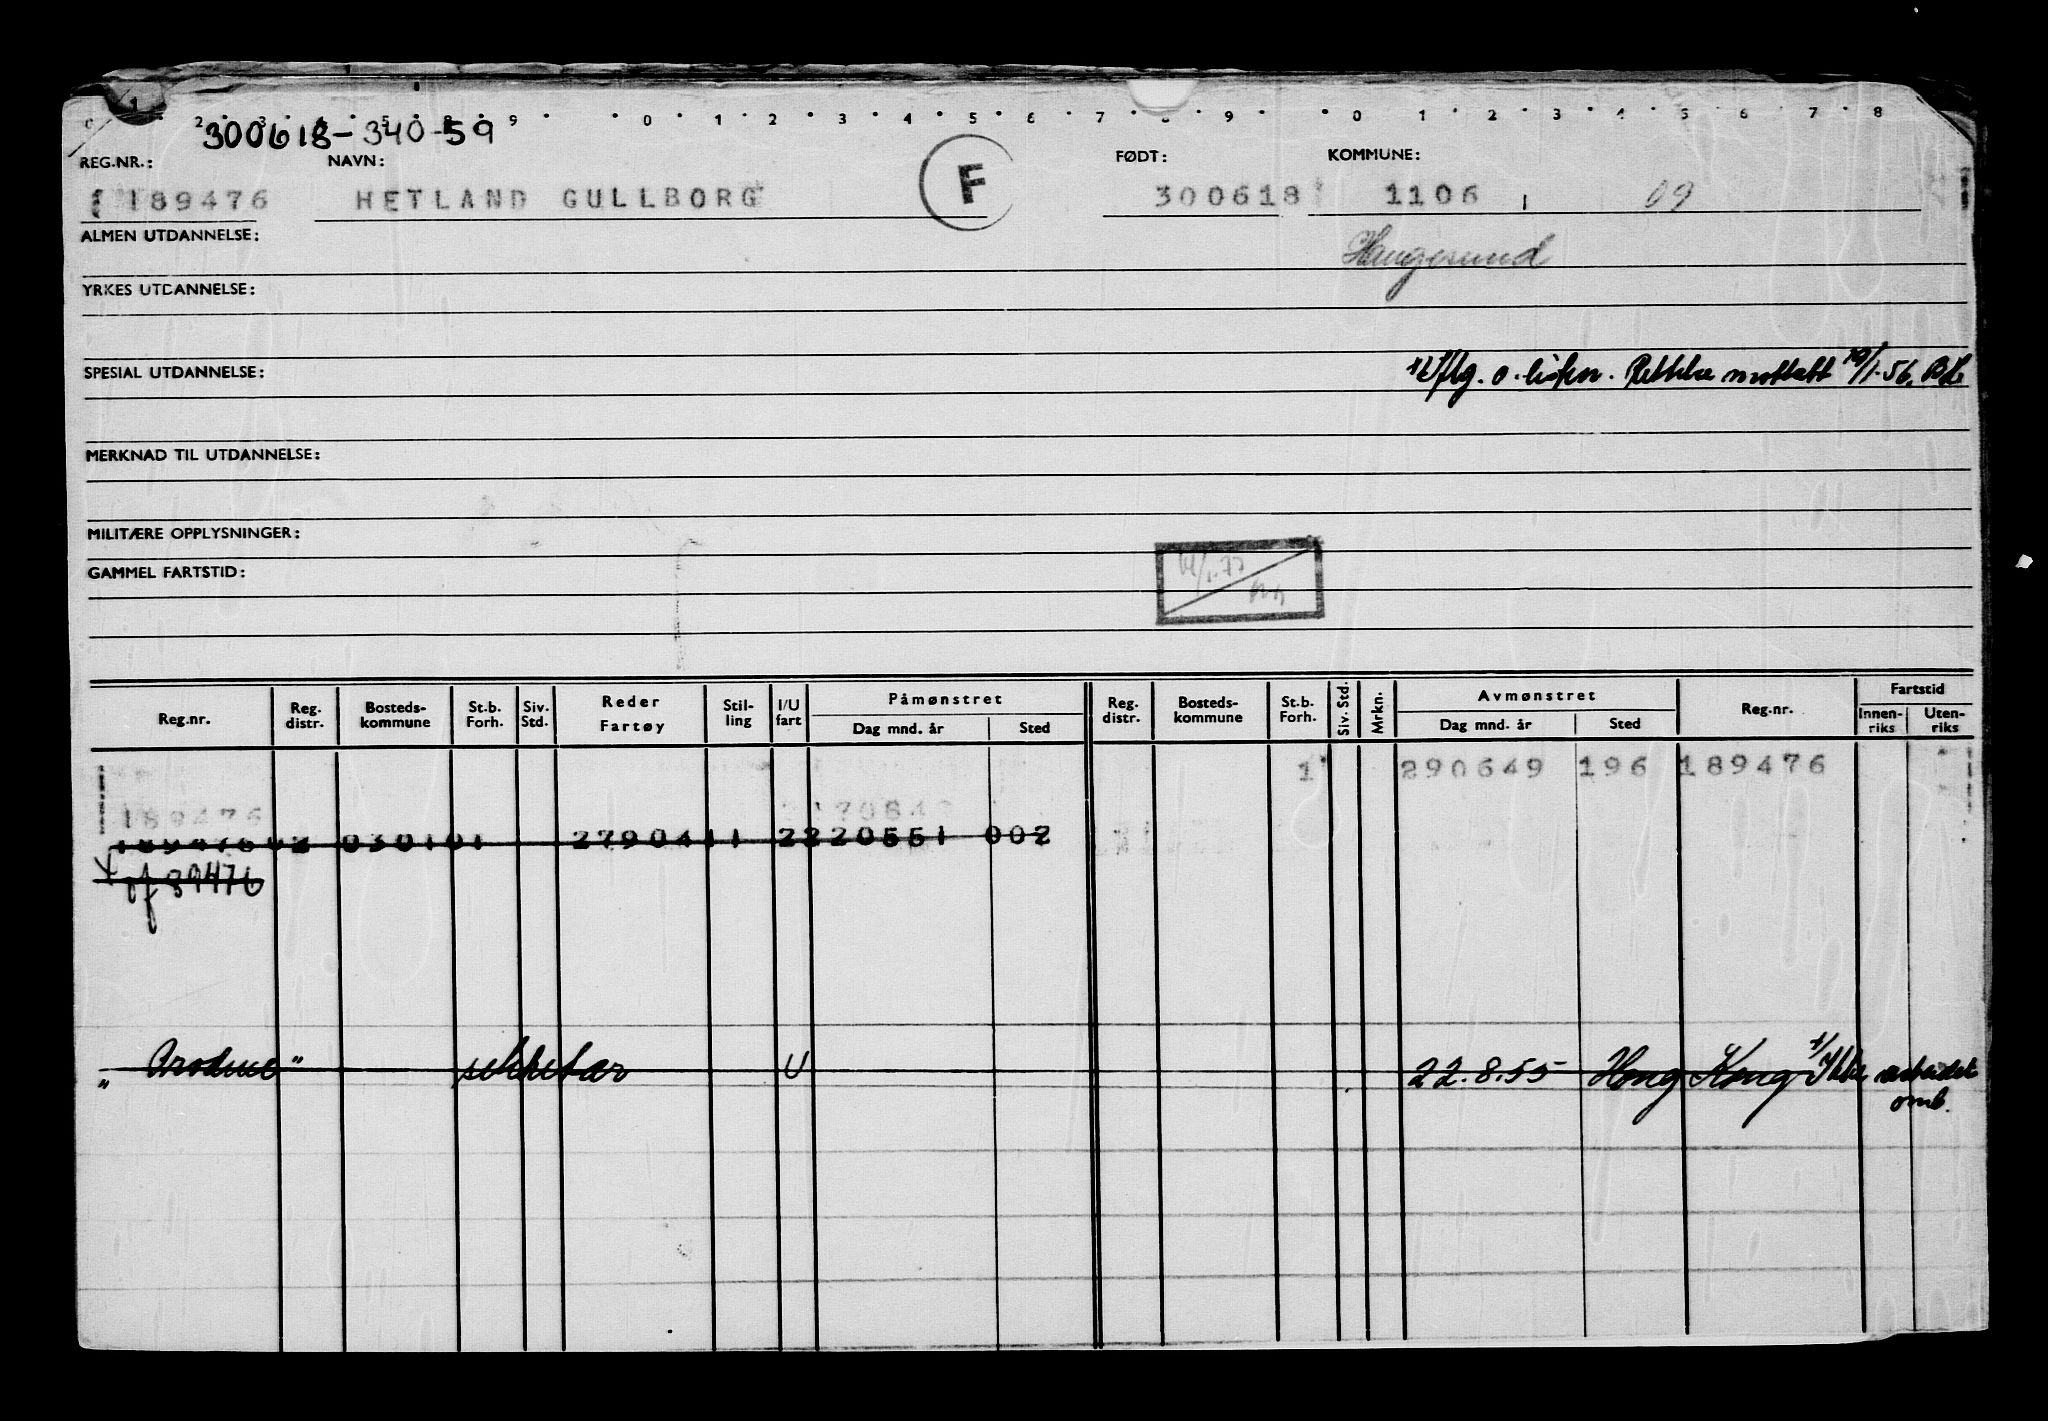 1
2 3 4 5 8 9 0 1 2 3 4 5 6 7 8 9 0 1 2 3 4 5 6 7 8
300618-340-59
REG.NR.: NAVN: FØDT: KOMMUNE:
189476 HETLAND GULLBORG F 300618 1106 09
ALMEN UTDANNELSE: Haugesund
YRKES UTDANNELSE:
SPESIAL UTDANNELSE: mottatt 19/1.56.
MERKNAD TIL UTDANNELSE:
MILITÆRE OPPLYSNINGER:
GAMMEL FARTSTID:
Reg.nr. Reg. distr. Bosteds-kommune St.b. Forh. Siv. Std. Reder Fartøy Stil-ling I/U fart Påmønstret Dag mnd. år Sted Reg. distr. Bosteds-kommune St.b. Forh. Siv. Std. Mrkn. Avmønstret Dag mnd. år Sted Reg.nr. Fartstid Innen-riks Uten-riks
1 290649 196 189476
189476
189476 02 0301 01 2790411 2 220551 002
of 89476
U 22.8.55 Hong Kong 1/ Ikke arbeidet
omb.